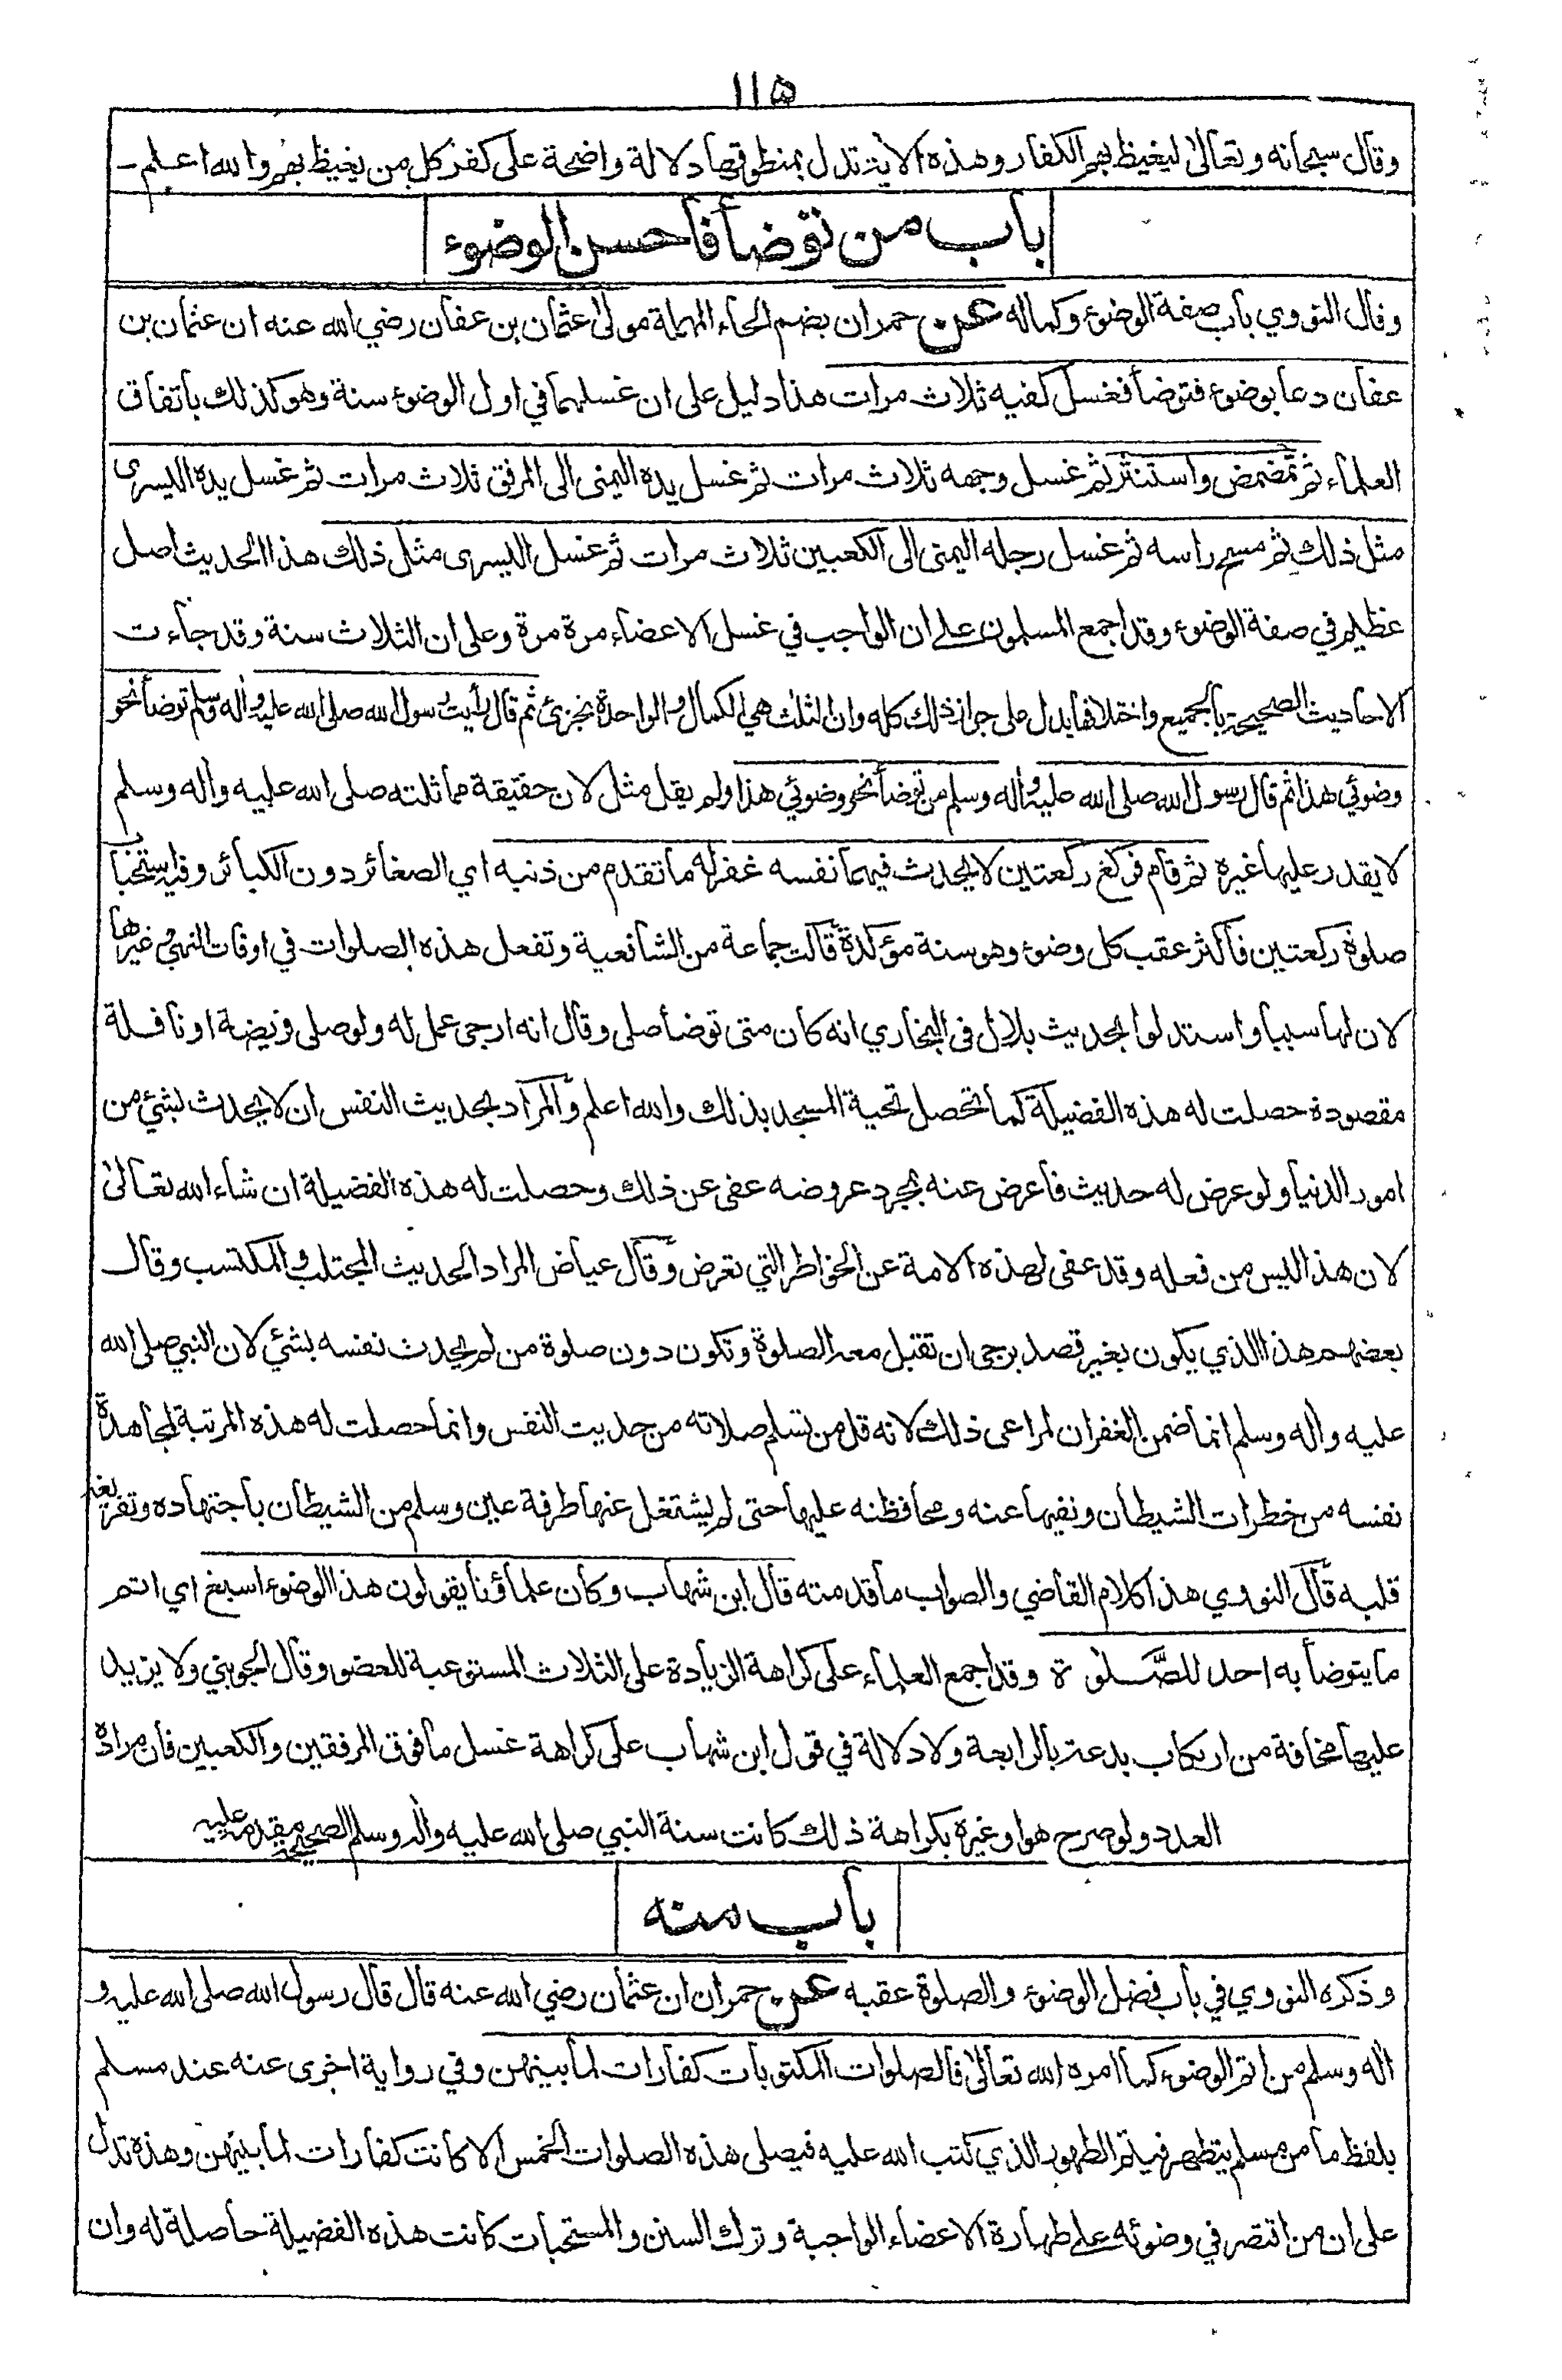 ١١٥
وقال سبحانه وتعالىٰ ليغيظ بهم الكفار وهذه الاية تدل بمنطوقها دلالة واضحة على كفر كل من يغيظ بهم والله اعلم ـ
باب من توضأ فأحسن الوضوء
وقال النووي باب صفة الوضوء وكماله عن حمران بضم الحاء المهملة مولى عثمان بن عفان رضي الله عنه ان عثمان بن
عفان دعا بوضوء فتوضأ فغسل كفيه ثلاث مرات هذا دليل على ان غسلهما في اول الوضوء سنة وهو كذلك باتفاق
العلماء ثم تمضمض واستنثر ثم غسل وجهه ثلاث مرات ثم غسل يده اليمنى الى المرفق ثلاث مرات ثم غسل يده اليسرى
مثل ذلك ثم مسح راسه ثم غسل رجله اليمنى الى الكعبين ثلاث مرات ثم غسل اليسرى مثل ذلك هذا الحديث اصل
عظيم في صفة الوضوء وقد اجمع المسلمون على ان الواجب في غسل الاعضاء مرة مرة وعلى ان الثلاث سنة وقد جاءت
الاحاديث الصحيحة بالجميع واختلافها يدل على جواز ذلك كله وان الثلث هي الكمال والواحدة تجزئ ثم قال رأيت رسول الله صلى الله عليه وأله وسلم توضأ نحو
وضوئي هذا ثم قال رسول الله صلى الله عليه وأله وسلم من توضأ نحو وضوئي هذا ولم يقل مثل لان حقيقة مماثلته صلى الله عليه وأله وسلم
لا يقدر عليها غيره ثم قام فركع ركعتين لا يحدث فيهما نفسه غفر له ما تقدم من ذنبه اي الصغائر دون الكبائر وفيه استحباب
صلوة ركعتين فأكثر عقب كل وضوء وهو سنة مؤكدة قالت جماعة من الشافعية وتفعل هذه الصلوات في اوقات النهي وغيرها
لان لها سببا واستدلوا بحديث بلال في البخاري انه كان متى توضأ صلى وقال انه ارجى عمل له ولو صلى فريضة او نافلة
مقصودة حصلت له هذه الفضيلة كما تحصل تحية المسجد بذلك والله اعلم والمراد بحديث النفس ان لا يحدث بشئ من
امور الدنيا ولو عرض له حديث فأعرض عنه بمجرد عروضه عفى عن ذلك وحصلت له هذه الفضيلة ان شاء الله تعالىٰ
لان هذا ليس من فعله وقد عفى لهذه الامة عن الخواطر التي تعرض وقال عياض المراد الحديث المجتلب والمكتسب وقال
بعضهم هذا الذي يكون بغير قصد يرجى ان تقبل معه الصلوة وتكون دون صلوة من لم يحدث نفسه بشئ لان النبي صلى الله
عليه وأله وسلم انما ضمن الغفران لمراعى ذلك لانه قل من تسلم صلاته من حديث النفس وانما حصلت له هذه المرتبة لمجاهدة
نفسه من خطرات الشيطان ونفيها عنه ومحافظته عليها حتى لم يشتغل عنها طرفة عين وسلم من الشيطان باجتهاده وتفريغه
قلبه قال النووي هذا كلام القاضي والصواب ما قدمته قال ابن شهاب وكان علماؤنا يقولون هذا الوضوء اسبغ اي اتم
ما يتوضأ به احد للصَّلوة وقد اجمع العلماء على كراهة الزيادة على الثلاث المستوعبة للعضو وقال الجويني ولا يزيد
عليها مخافة من ارتكاب بدعة بالرابعة ولا دلالة في قول ابن شهاب على كراهة غسل ما فوق المرفقين والكعبين فان مراده
العدد ولو صرح هو او غيره بكراهة ذلك كانت سنة النبي صلى الله عليه وأله وسلم الصحيحة مقدمة عليه
باب منه
وذكره النووي في باب فضل الوضوء والصلوة عقبه عن حمران ان عثمان رضي الله عنه قال قال رسول الله صلى الله عليه و
أله وسلم من اتم الوضوء كما امره الله تعالىٰ فالصلوات المكتوبات كفارات لما بينهن وفي رواية اخرى عنه عند مسلم
بلفظ ما من مسلم يتطهر فيتم الطهور الذي كتب الله عليه فيصلى هذه الصلوات الخمس الا كانت كفارات لما بينهن وهذه تدل
على ان من اقتصر في وضوئه على طهارة الاعضاء الواجبة وترك السنن والمستحبات كانت هذه الفضيلة حاصلة له وان